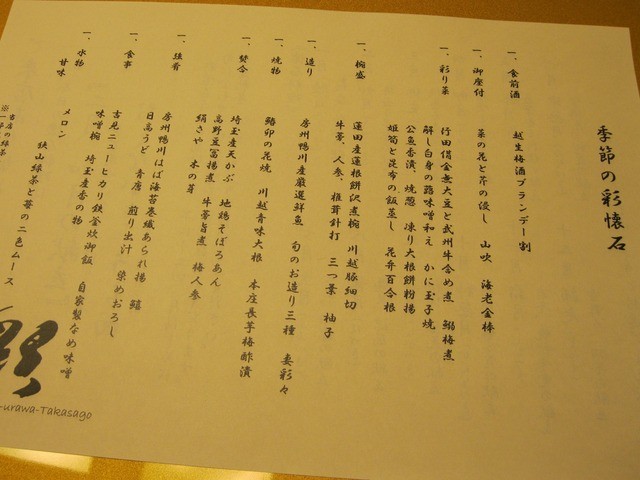 季節の彩懐石
一、食前酒　越生梅酒ブランデー割
一、御座付　菜の花と芹の浸し　山吹　海老金棒
一、彩り菜　行田借金無大豆と武州牛含め煮　鰯梅煮
解し白身の蕗味噌和え　かに玉子焼
公魚香漬、焼葱　凍り大根餅粉揚
姫筍と昆布の飯蒸し　花弁百合根
一、椀盛　蓮田産蓮根餅沢煮椀　川越豚細切
牛蒡、人参、椎茸針打　三つ葉　柚子
一、造り　房州鴨川産厳選鮮魚　旬のお造り三種　妻彩々
一、焼物　鰆卯の花焼　川越青味大根　本庄長芋梅酢漬
一、焚合　埼玉産天かぶ　地鶏そぼろあん
高野豆冨揚煮　牛蒡旨煮　梅人参
絹さや　木の芽
一、強肴　房州鴨川はば海苔巻繊あられ揚　鱚
日高うど　青唐　煎り出汁　染めおろし
一、食事　吉見ニューヒカリ鉄釜炊御飯　自家製なめ味噌
味噌椀　埼玉産香の物
一、水物　メロン
甘味　狭山緑茶と苺の二色ムース
※当店の緑茶
彩
-urawa-Takasago